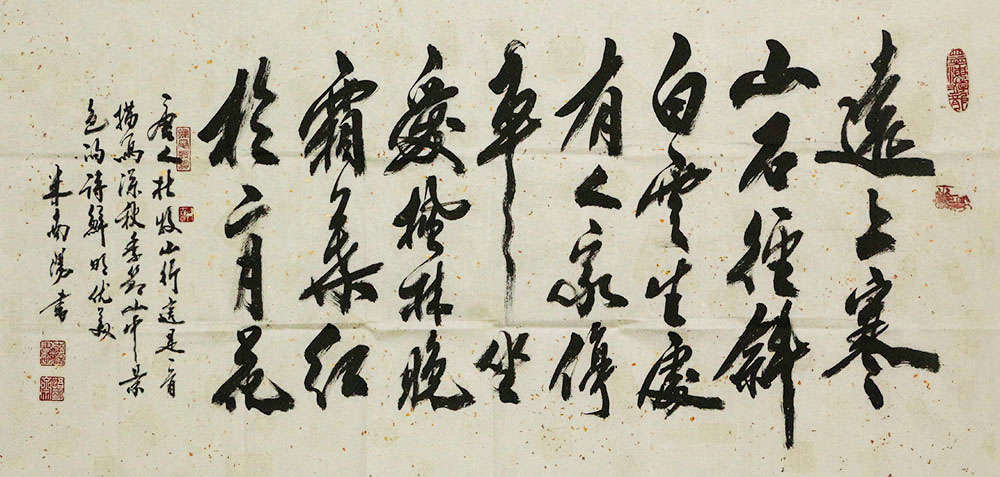 遠上寒
山石徑斜
白雲生處
有人家停
車坐
愛楓林晚
霜葉紅
於二月花
唐人杜牧山行這是一首
描寫深秋季節山中景
色的詩鮮明優美
米南陽書